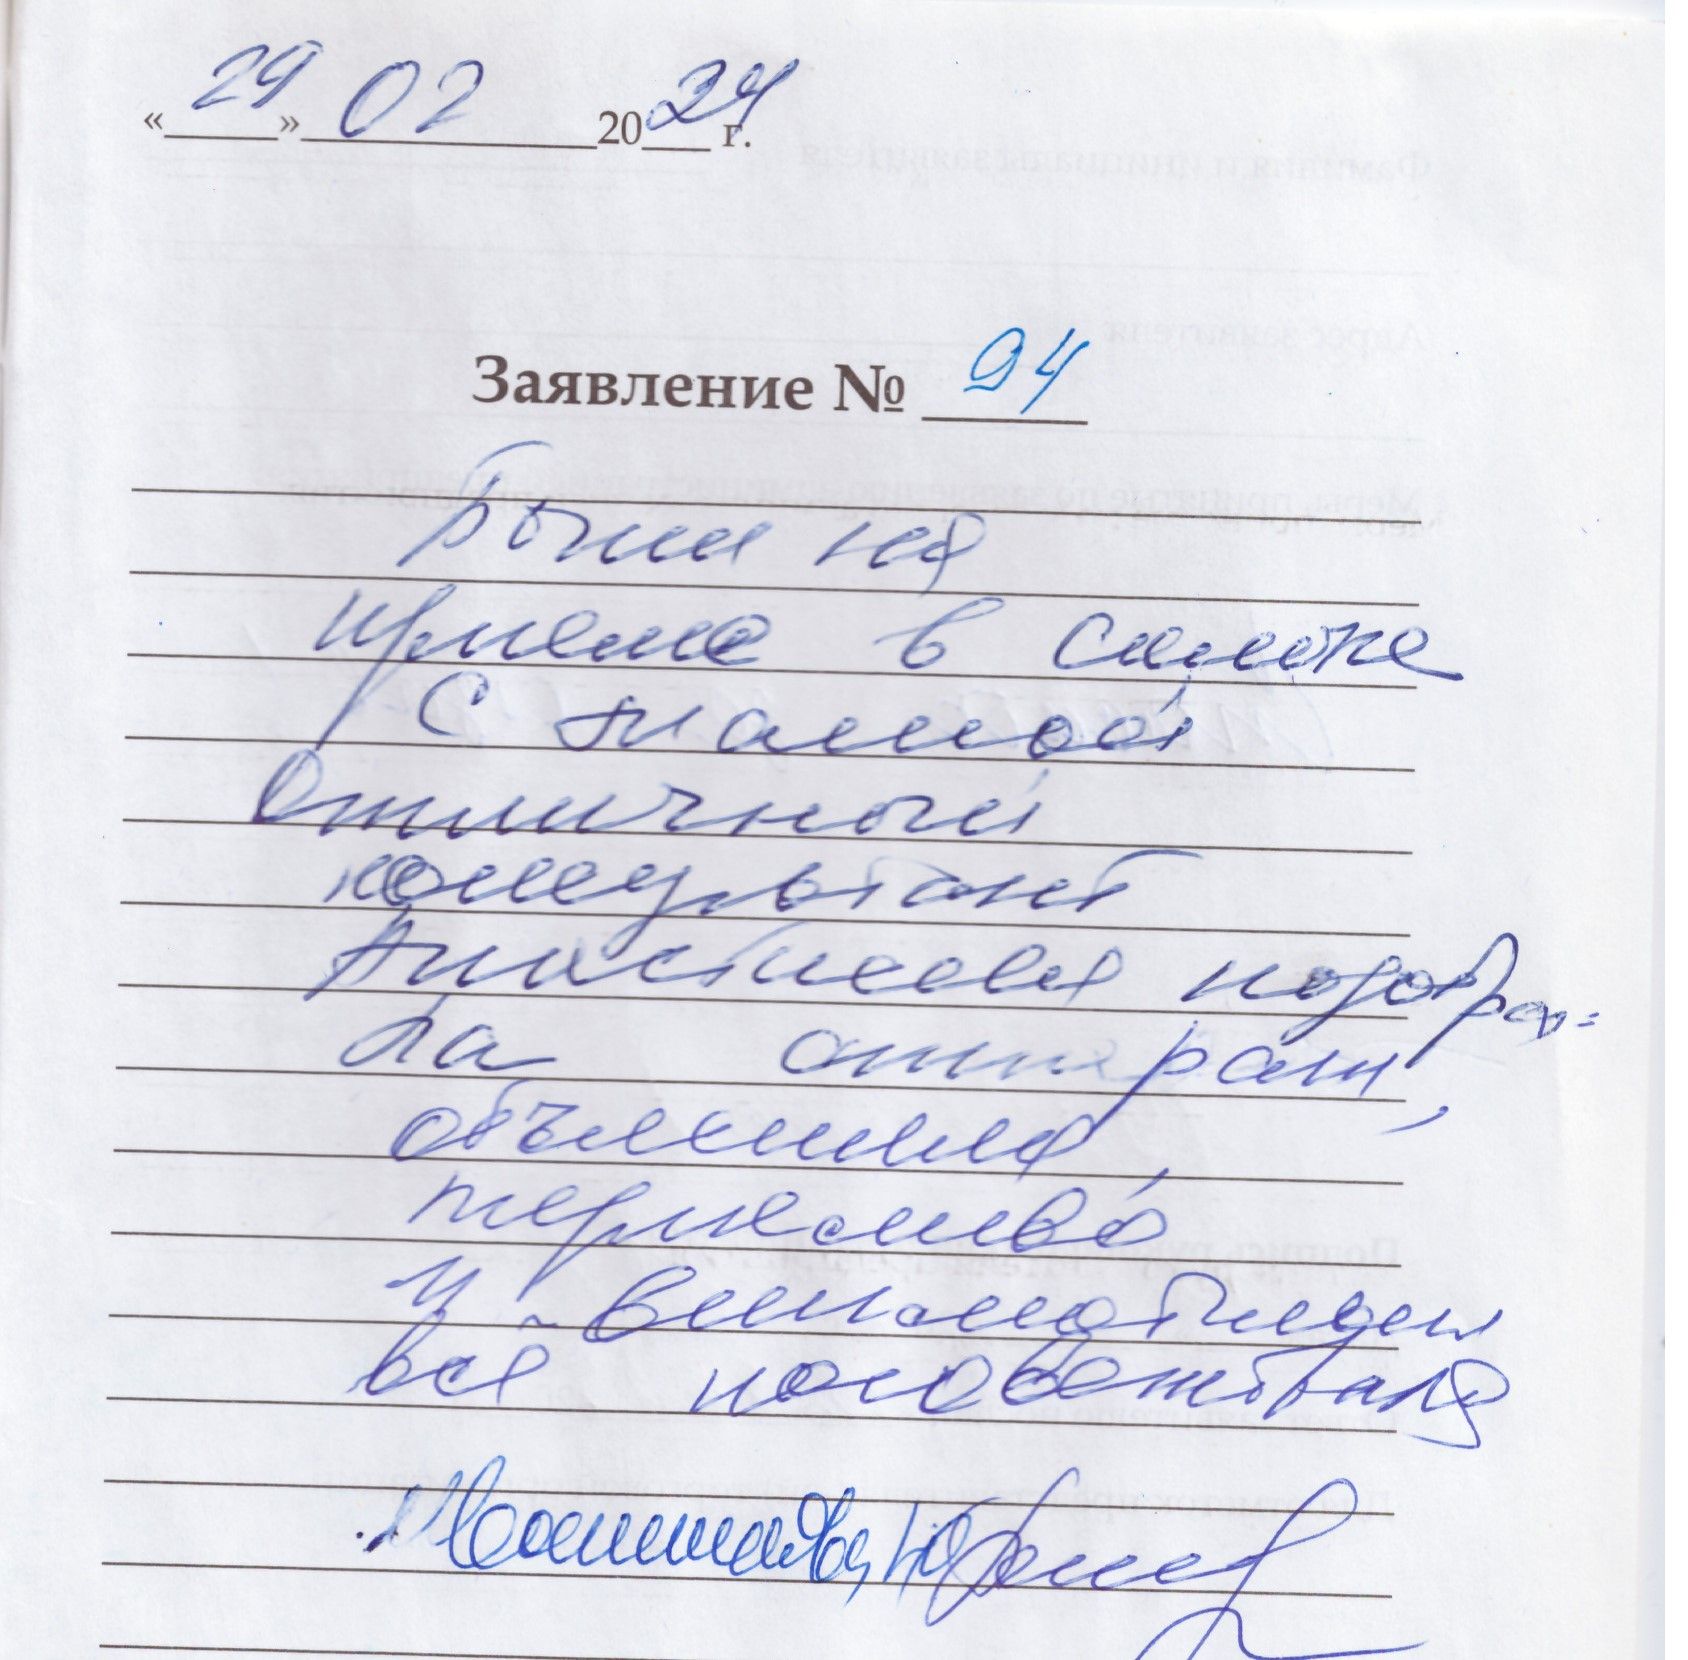 «29» 02 2024 г.
Заявление № 94
Были на
приеме в салоне
с мамой
Отличный
консультант
Анастасия подобра=
ла аппарат,
объяснила,
терпеливо
и внимательно
все посоветовала